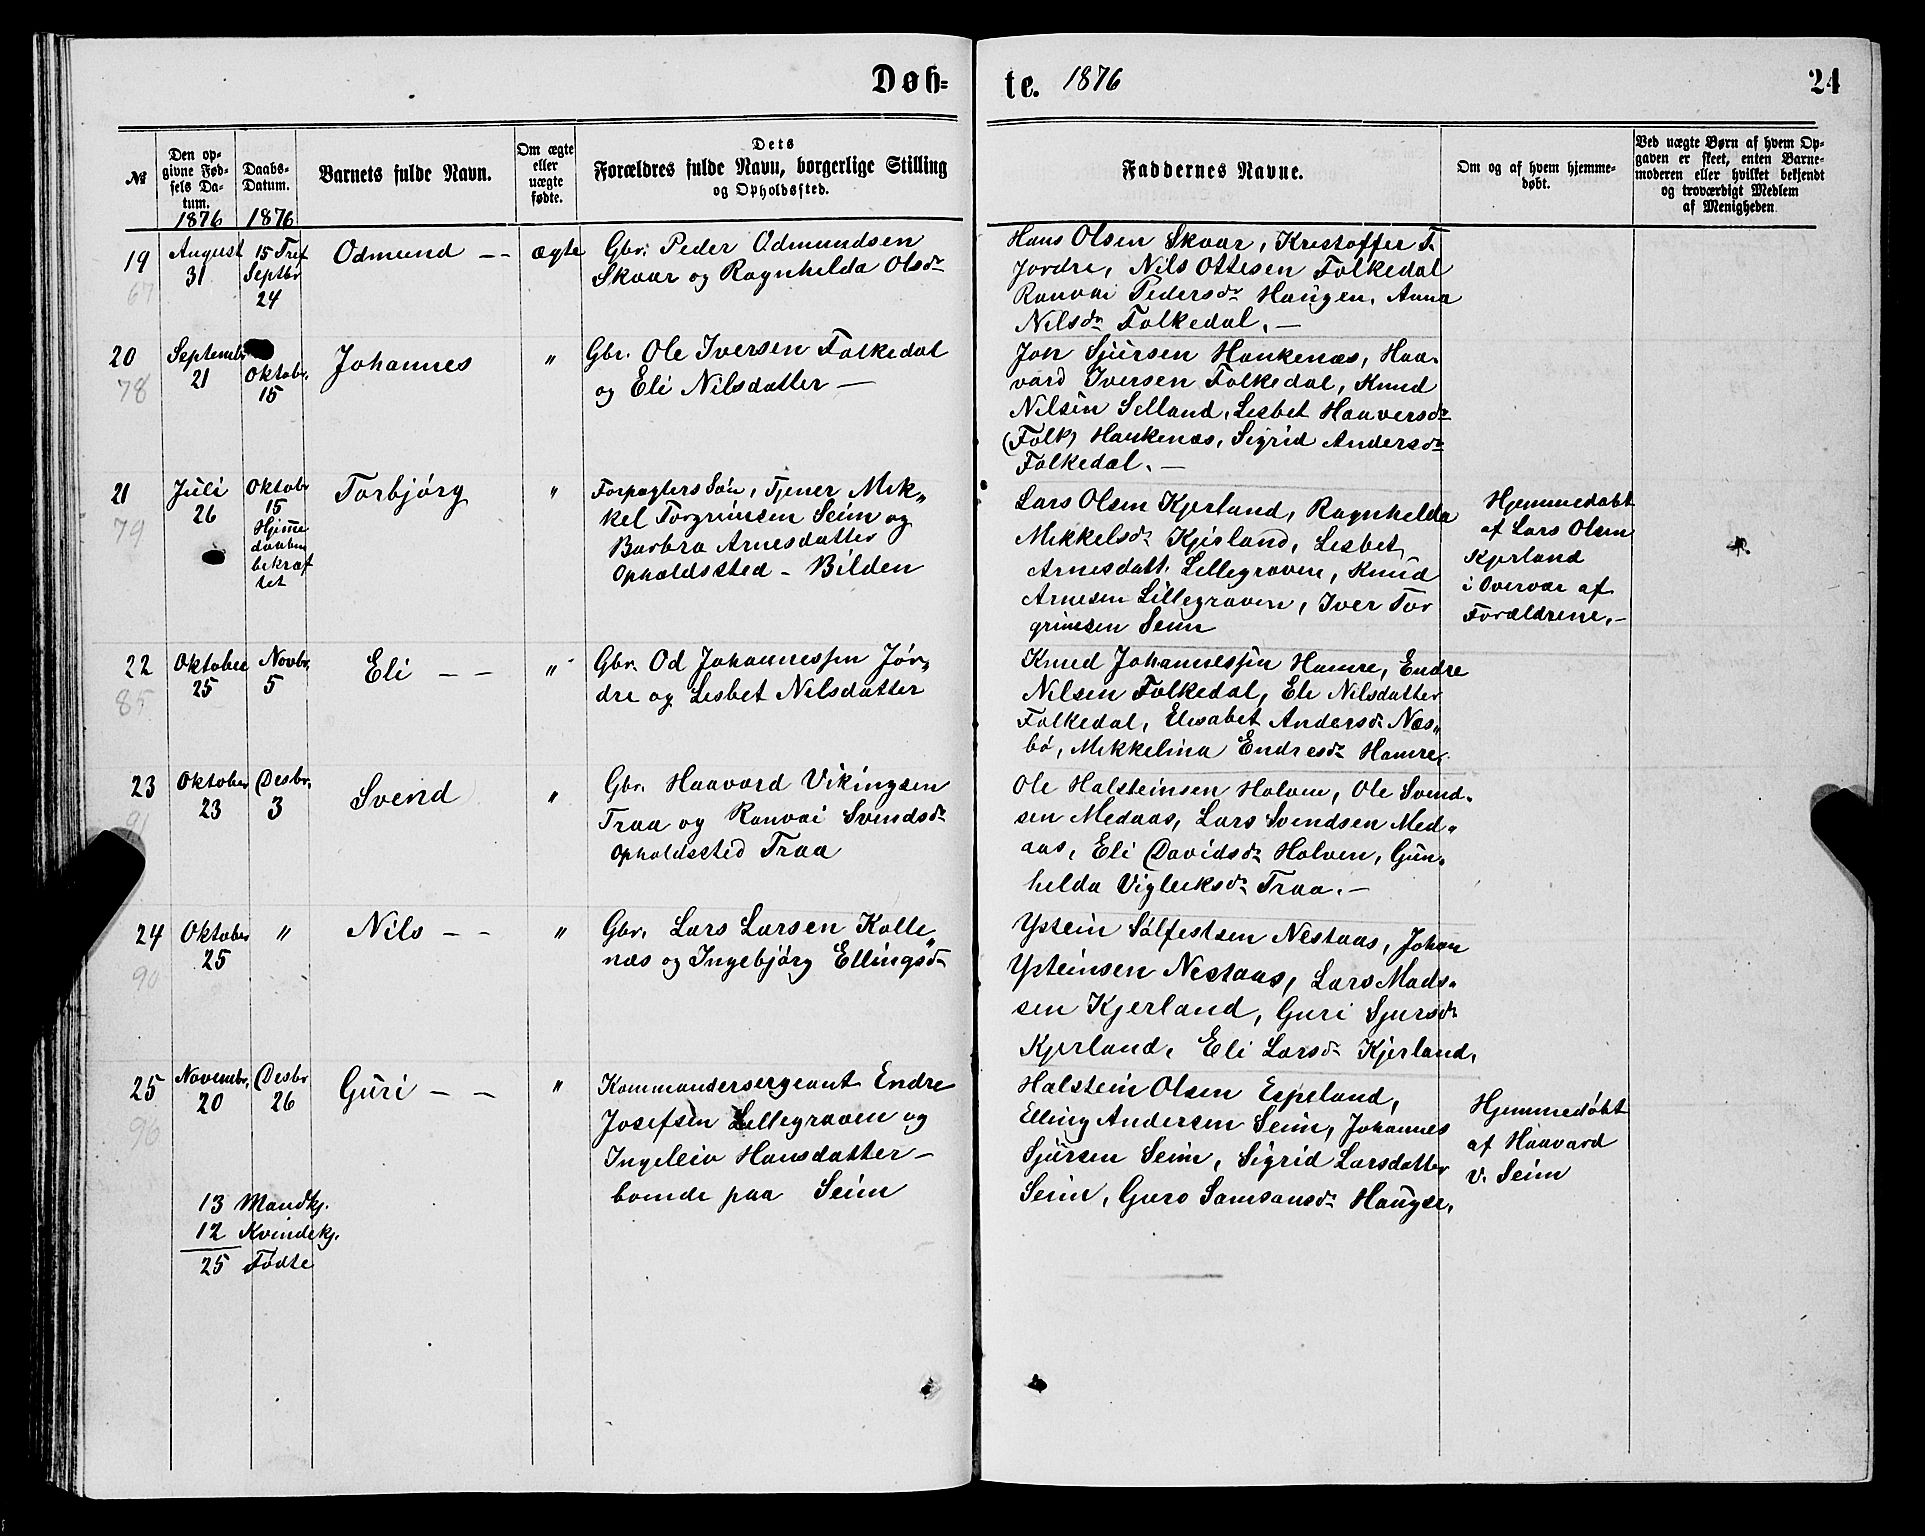 Døb-
te. 1876
24
№
Den op-
givne Fød-
sels Da-
tum.
1876
Daabs-
Datum.
1876
Barnets fulde Navn.
Om ægte
eller
uægte
fødte.
Dets
Forældres fulde Navn, borgerlige Stilling
og Opholdssted.
Faddernes Navne.
Om og af hvem hjemme-
døbt.
Ved uægte Børn af hvem Op-
gaven er skeet, enten Barne-
moderen eller hvilket bekjendt
og troværdigt Medlem
af Menigheden.
19
67
August
31
15 Tref
Septbr
24
Odmund - -
ægte
Gbr. Peder Odmundsen
Skaar og Ragnhelda Olsdr
Hans Olsen Skaar, Kristoffer T.
Jordre, Nils Ottesen Folkedal
Ranvei Pedersdr Haugen, Anna
Nilsdr Folkedal. -
20
78
Septembr
21
Oktobr.
15
Johannes
"
Gbr. Ole Iversen Folkedal
og Eli Nilsdatter -
Jon Sjursen Hankenæs, Haa-
vard Iversen Folkedal, Knud
Nilsen Selland, Lisbet Haaversdr
(Folk) Hankenæs, Sigrid Andersdr
Folkedal. -
21
79
Juli
26
Oktobr
15
Hjeme
daaben
bekræf
tet
Torbjørg
"
Forpagters Søn, Tjener Mik-
kel Torgrimsen Seim og
Barbra Arnesdatter
Opholdssted - Bilden
Lars Olsen Kjerland, Ragnhelda
Mikkelsdr Kjerland, Lisbet
Arnesdatt. Lillegraven, Knud
Arnesen Lillegraven, Iver Tor
grimsen Seim
Hjemmedøbt
af Lars Olsen
Kjerland
i Overvær af
Forældrene. -
22
85
Oktober
25
Novbr.
5
Eli - -
"
Gbr. Od Johannessen Jør-
dre og Lisbet Nilsdatter
Knud Johannessen Hamre, Endre
Nilsen Folkedal, Eli Nilsdatter
Folkedal, Elisabet Andersdr Næs-
bø, Mikkelina Endresdr Hamre.
23
91
Oktober
23
Desbr.
3
Svend
"
Gbr. Haavard Vikingsen
Traa og Ranvei Svendsdr
Opholdssted Traa
Ole Halsteinsen Holven, Ole Svend-
sen Medaas, Lars Svendsen Med-
aas, Eli Davidsdr Holven, Gun-
helda Vigleiksdr Traa. -
24
90
Oktober
25
"
Nils - -
"
Gbr. Lars Larsen Kolle-
næs og Ingebjørg Ellingsdr
Ystein Sølfestsen Nestaas, Johan
Ysteinsen Nestaas, Lars Mads-
sen Kjerland, Guri Sjursdr
Kjerland, Eli Larsdr Kjerland,
25
96
Novembr.
20
Desbr
26
Guri - -
"
Kommandersergeant Endre
Josefsen Lillegraven og
Ingeleiv Hansdatter -
boende paa Seim
Halstein Olsen Espeland,
Elling Andersen Seim, Johannes
Sjursen Seim, Sigrid Larsdatter
Seim, Guro Samsonsdr Haugse.
Hjemmedøbt
af Haavard
V. Seim
13 Mandkj.
12 Kvindekj.
25 Fødte